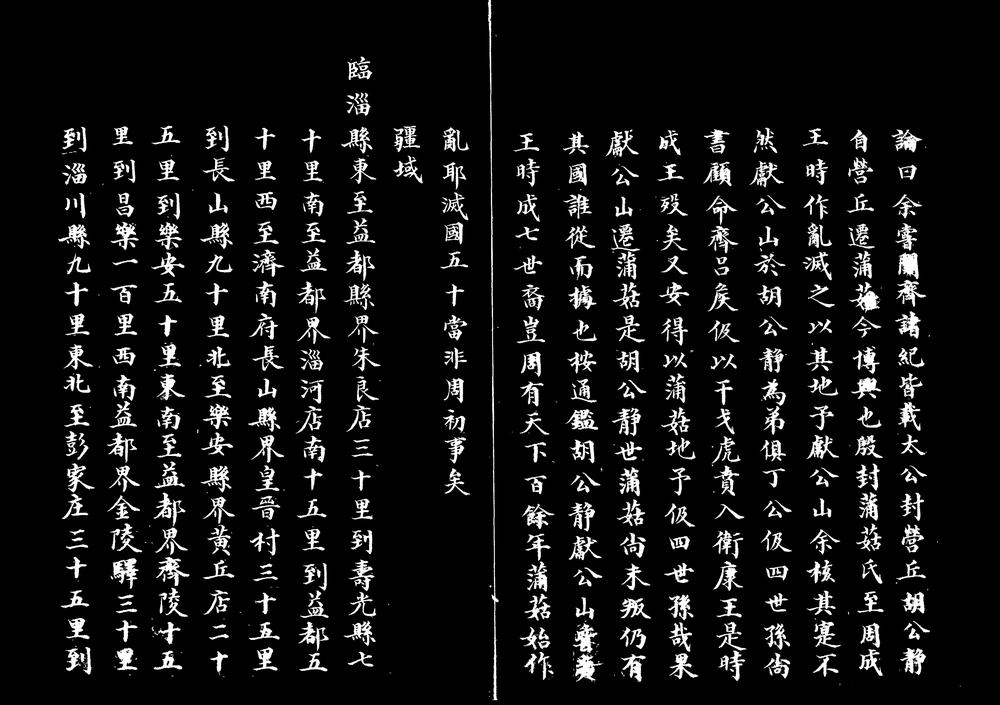 論曰余嘗閱齊諸紀皆載太公封營丘胡公靜
自營丘遷蒲菇今博興也殷封蒲菇氏至周成
王時作亂滅之以其地予獻公山余核其寔不
然獻公山於胡公靜為弟俱丁公伋四世孫尙
書顧命齊呂矦伋以干戈虎賁入衛康王是時
成王歿矣又安得以蒲菇地予伋四世孫哉果
獻公山遷蒲菇是胡公靜世蒲菇尙未叛仍有
其國誰從而據也桉通鑑胡公靜獻公山當夷
王時成七世裔豈周有天下百餘年蒲菇始作
亂耶滅國五十當非周初事矣
疆域
臨淄縣東至益都縣界朱良店三十里到壽光縣七
十里南至益都界淄河店南十五里到益都五
十里西至濟南府長山縣界皇晉村三十五里
到長山縣九十里北至樂安縣界黃丘店二十
五里到樂安五十里東南至益都界齊陵十五
里到昌樂一百里西南益都界金陵驛三十里
到淄川縣九十里東北至彭家庄三十五里到